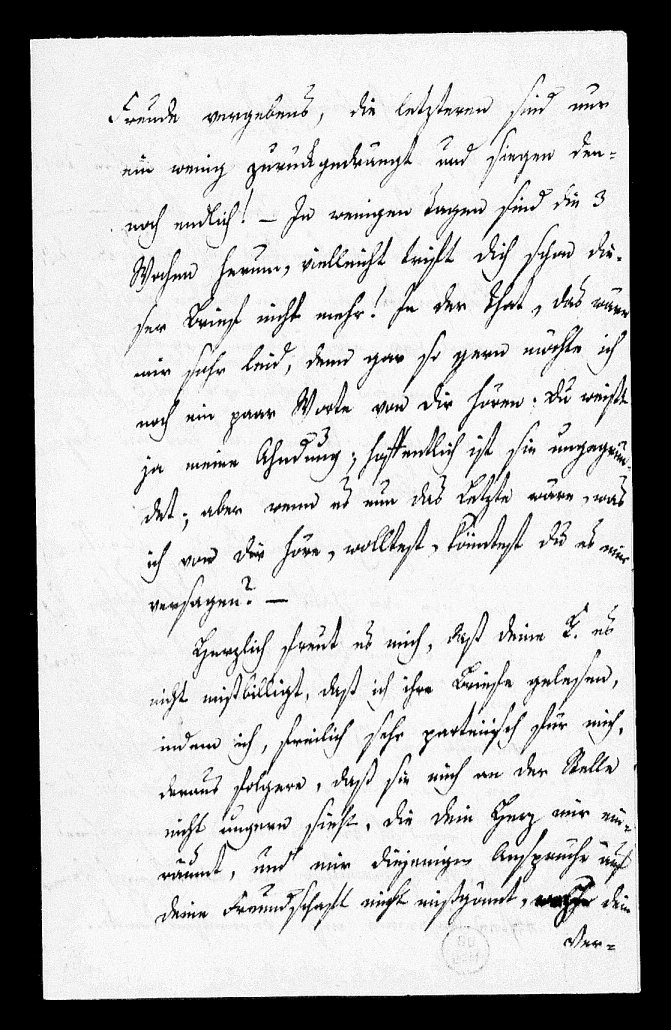 Freude vergebens, die letzteren sind nur
ein wenig zurückgedrängt und siegen den-
noch endlich! – In wenigen Tagen sind die 3
Wochen herum, vielleicht trifft dich schon die-
ser Brief nicht mehr! In der That, das wäre
mir sehr leid, denn gar so gern möchte ich
noch ein paar Worte von dir hören. Du weißt
ja meine Ahndung; hoffentlich ist sie ungegrün-
det; aber wenn es nun das Letzte wäre, was
ich von dir höre, wolltest, könntest du es mir
versagen? –
Herzlich freut es mich, daß deine E. es
nicht mißbilligt, daß ich ihre Briefe gelesen,
indem ich, freilich sehr parteiisch für mich,
daraus folgere, daß sie mich an der Stelle
nicht ungern sieht, die dein Herz mir ein-
räumt, und mir diejenigen Ansprüche auf
deine Freundschaft nicht mißgönnt, welche dein
Ver-